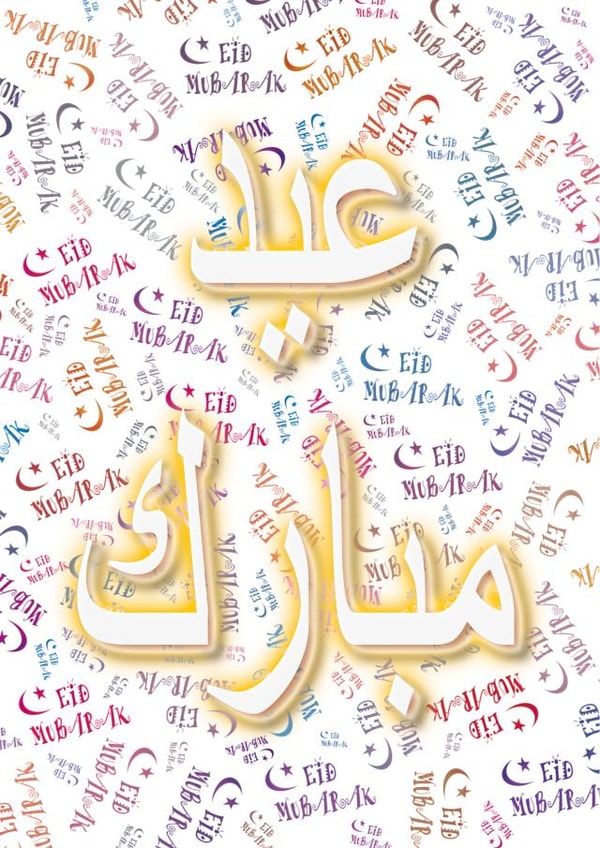 عيد
مبارك
EID
MUBARAK